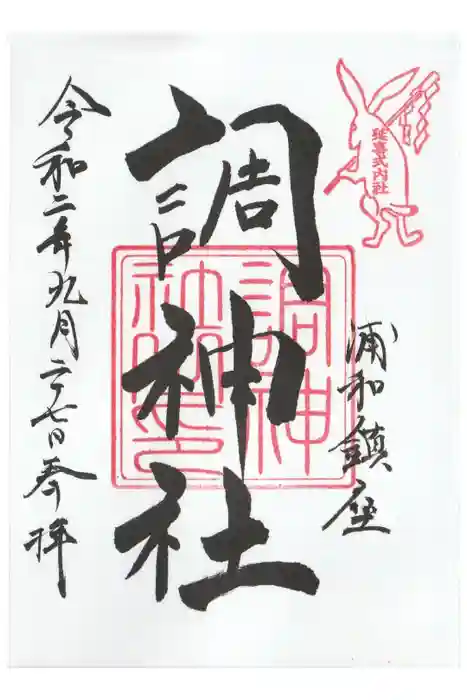 延喜式内社
浦和鎮座
調神社
調神
社之印
令和二年九月二十七日奉拝